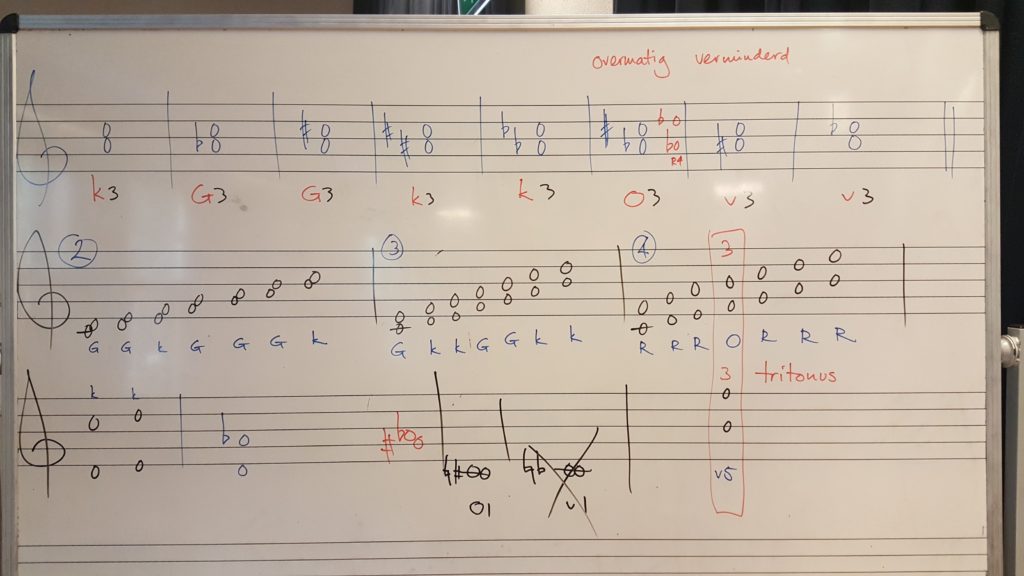 overmatig verminderd
R4
k3 G3 G3 k3 k3 O3 v3 v3
2 3 4 3
G G k G G G k G k k G G k k R R R O R R R
k k 3 tritonus
v5
O1 v1